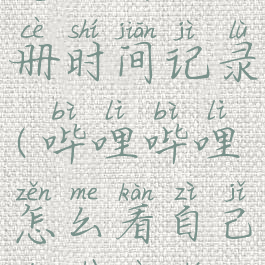 cè shí jiān jì lù
册时间记录
bì lì bì lì
(哔哩哔哩
zěn me kàn zì jǐ
怎么看自己